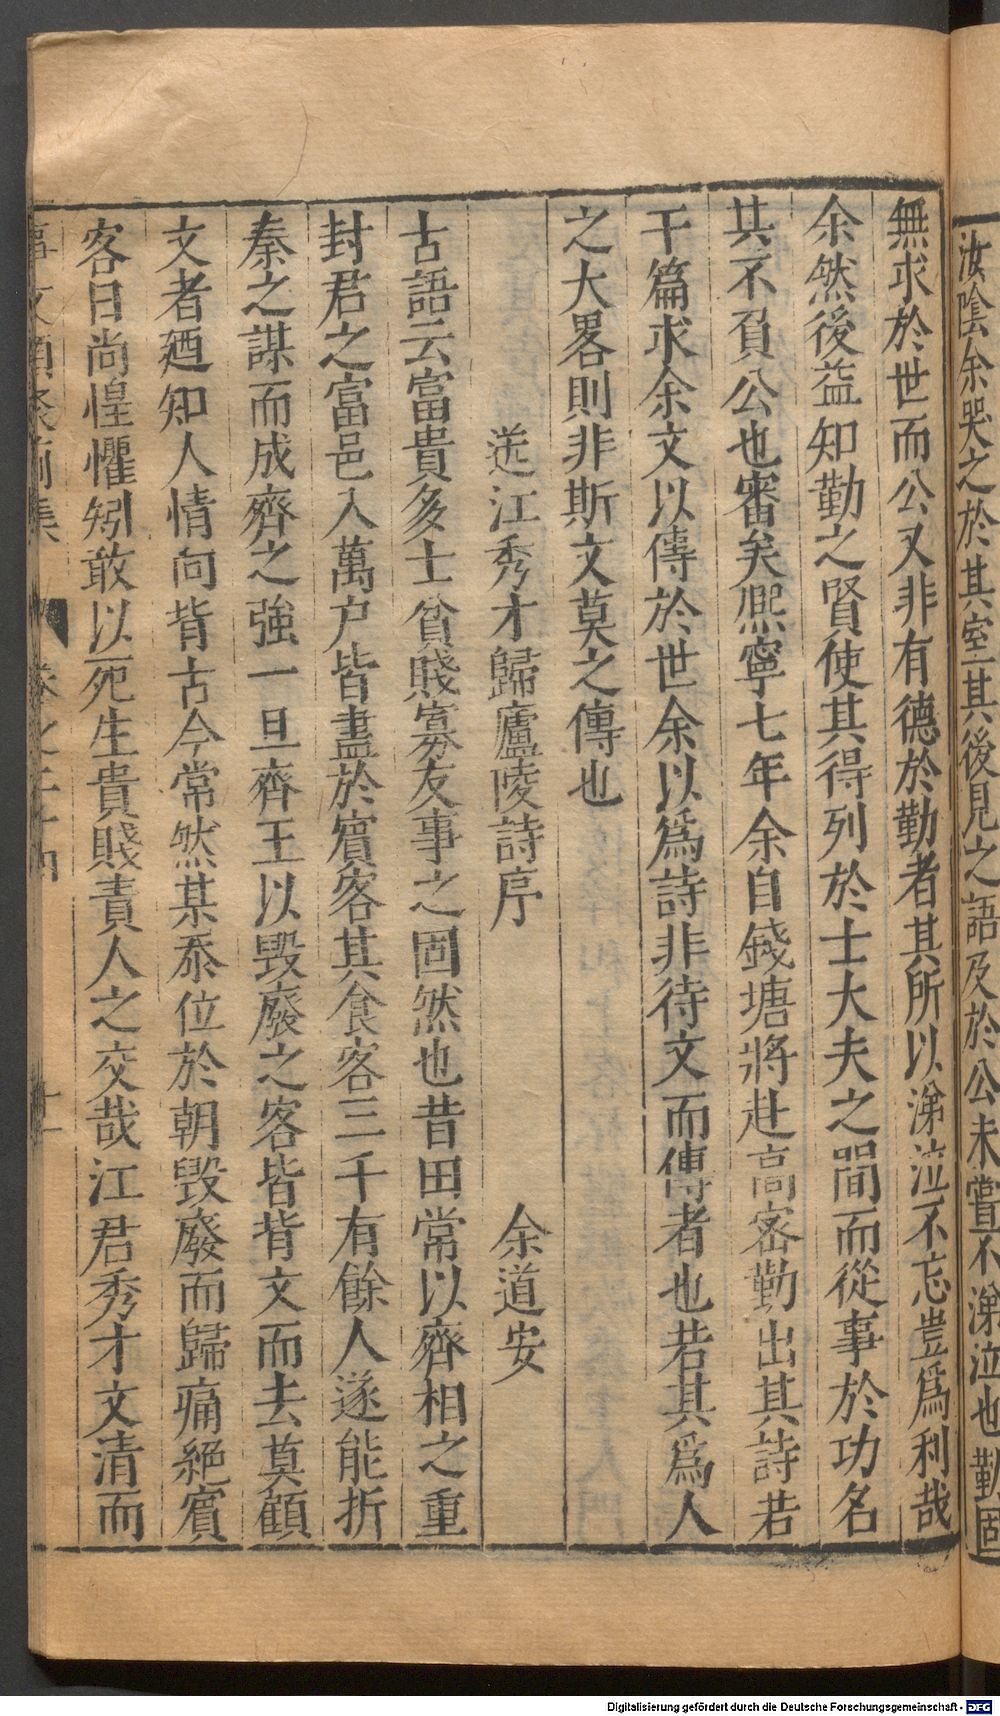 汝隂余哭之於其室其後見之語及於公未嘗不涕泣也勤固
無求於世而公又非有德於勤者其所以涕泣不忘豈爲利哉
余然後益知勤之賢使其得列於士大夫之間而從事於功名
其不負公也審矣熈寧七年余自錢塘將赴高密勤出其詩若
干篇求余文以傳於世余以爲詩非待文而傳者也若其爲人
之大畧則非斯文莫之傳也
送江秀才歸廬陵詩序 余道安
古語云富貴多士貧賤寡友事之固然也昔田常以齊相之重
封君之富邑入萬户皆盡於賓客其食客三千有餘人遂能折
秦之謀而成齊之強一旦齊王以毁廢之客皆背文而去莫顧
文者廼知人情向背古今常然某忝位於朝毁廢而歸痛絕賓
客日尚惶懼矧敢以死生貴賤責人之交哉江君秀才文清而
事文類聚前集 卷之二十四 十一
Digitalisierung gefördert durch die Deutsche Forschungsgemeinschaft - DFG